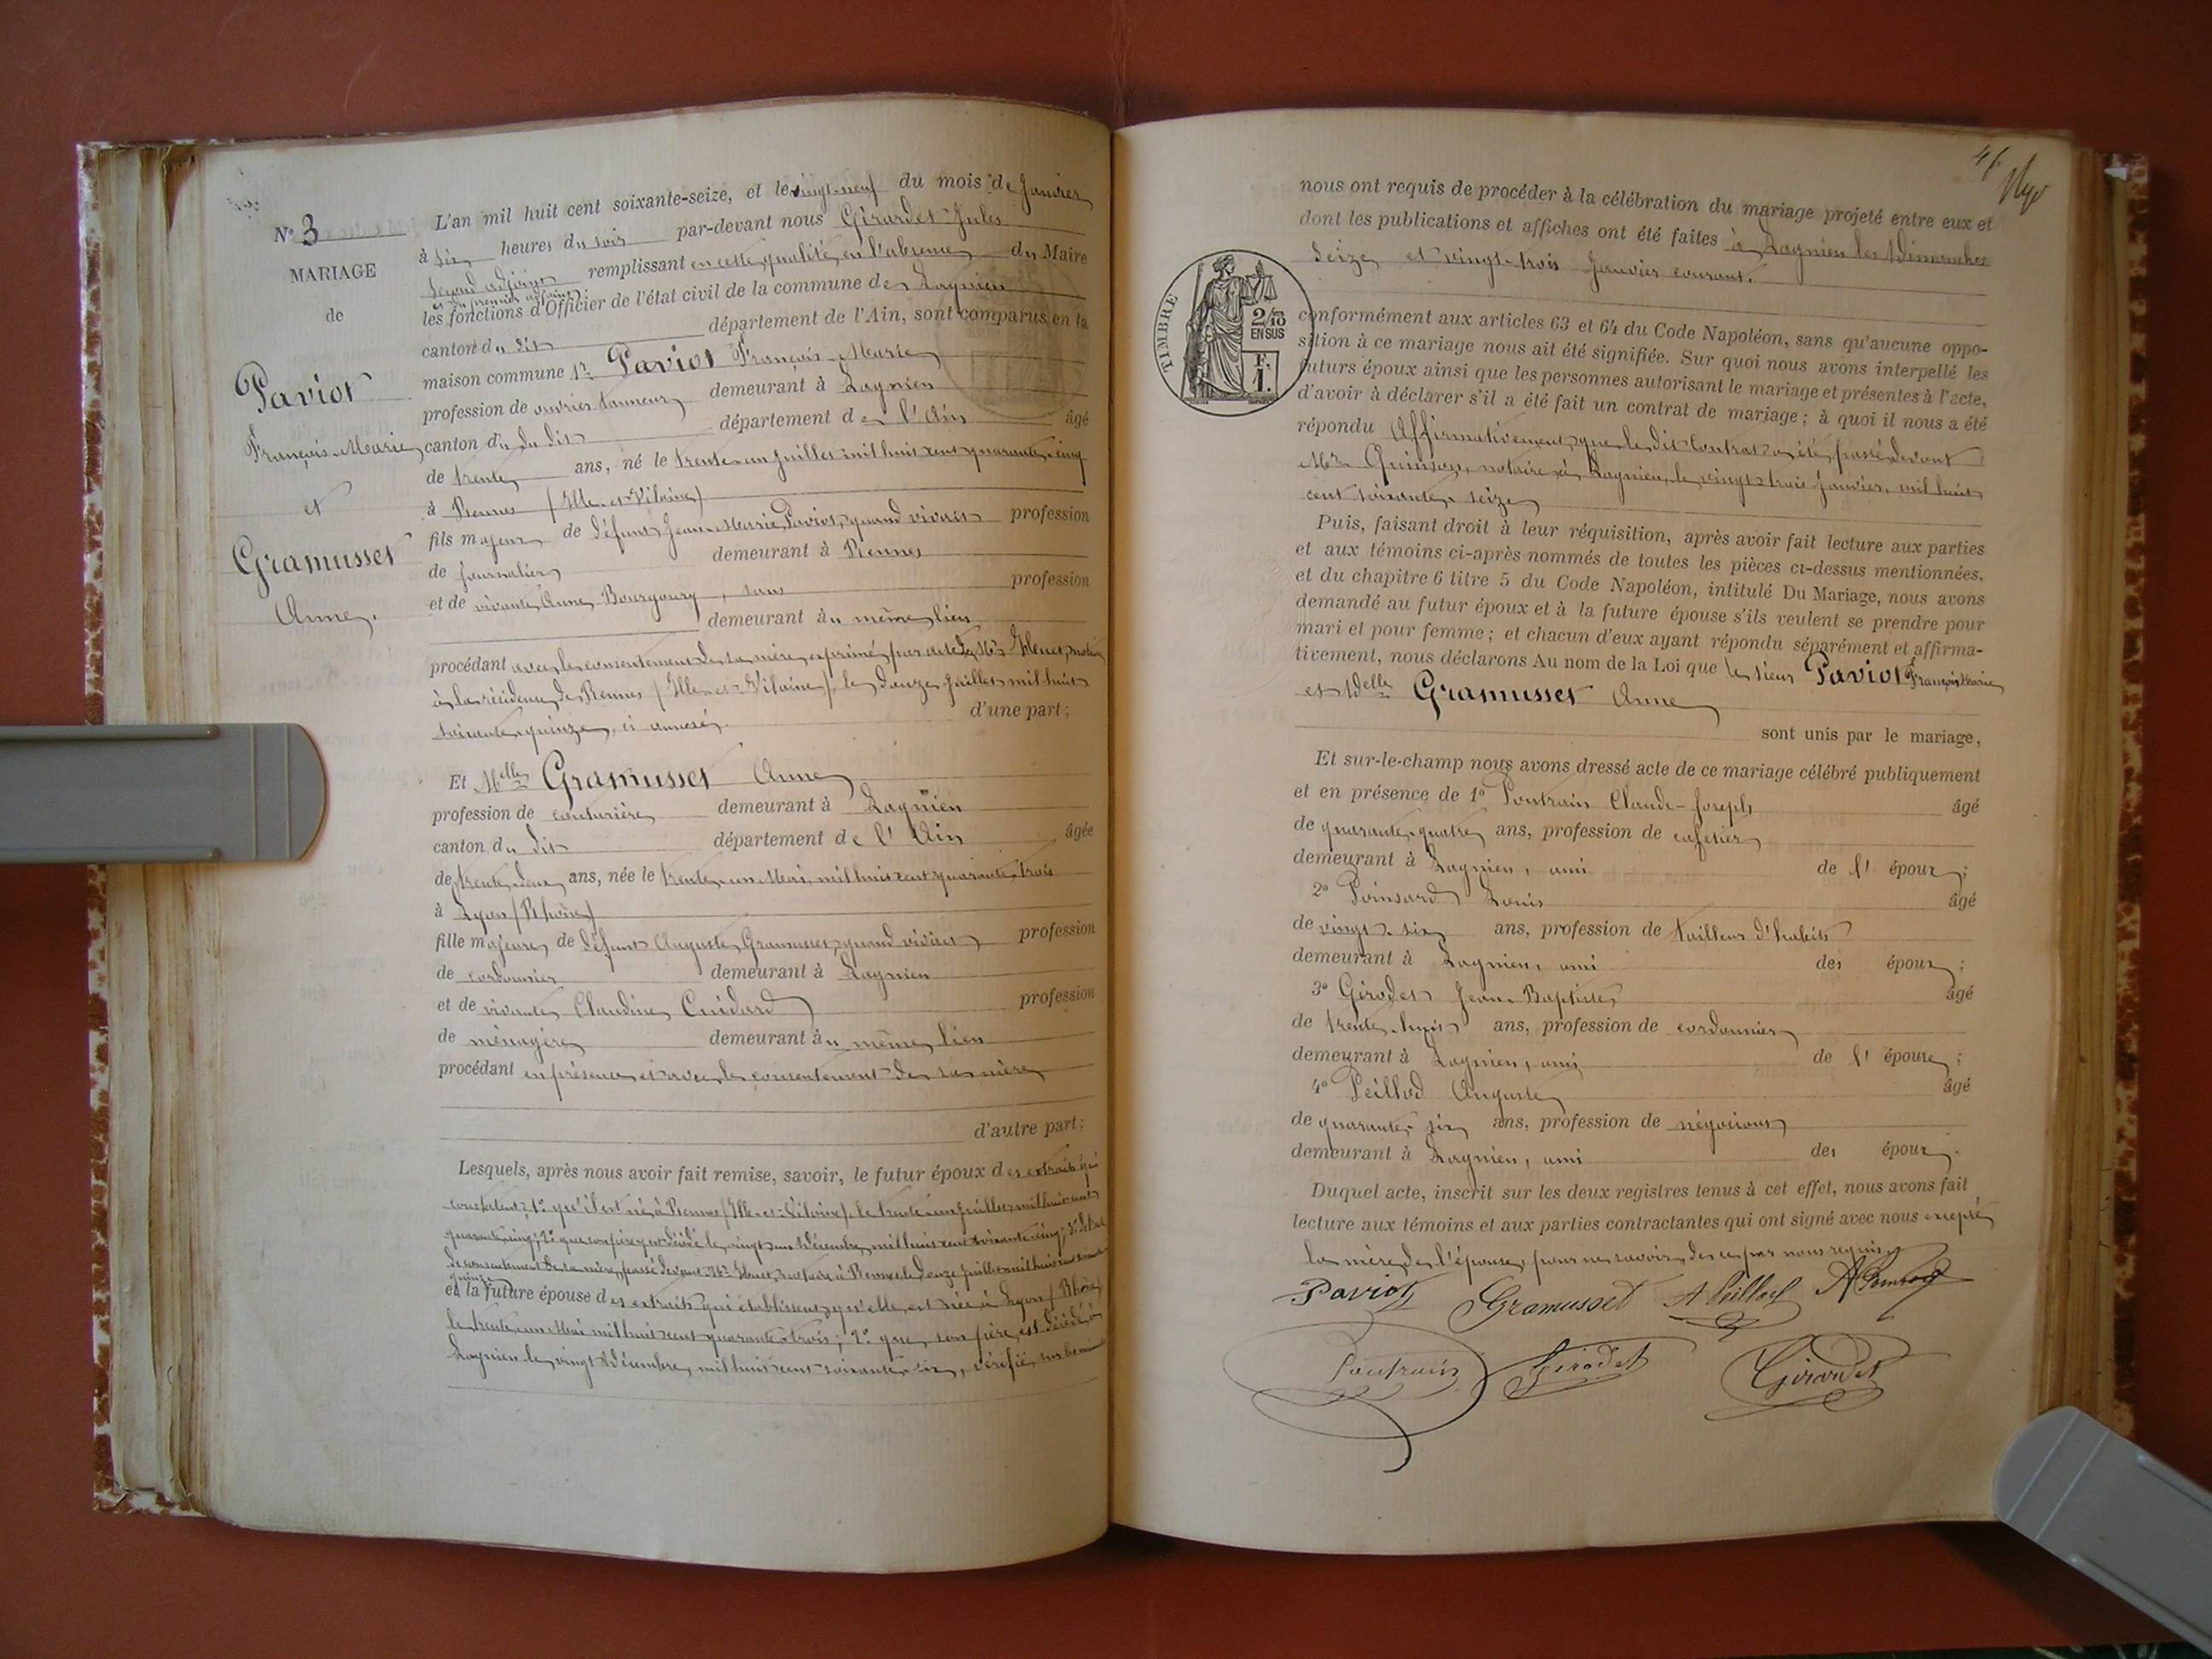 N° 3
MARIAGE
de
Paviot
François-Marie
et
Gramusset
Anne.
L'an mil huit cent soixante-seize, et le vingt-neuf du mois de Janvier
à six heures du soir par-devant nous Girardet Jules
second adjoint remplissant en cette qualité, en l'absence du Maire
et du premier adjoint
les fonctions d'Officier de l'état civil de la commune de Lagnieu
canton du dit département de l'Ain, sont comparus en la
maison commune 1° Paviot François-Marie
profession de ouvrier tanneur demeurant à Lagnieu
canton du du dit département de l'Ain âgé
de trente ans, né le trente-un Juillet mil huit cent quarante-cinq
à Rennes (Ille-et-Vilaine)
fils majeur de défunt Jean-Marie Paviot, quand vivait profession
de journalier demeurant à Rennes
et de vivante Anne Bourgoury, sans profession
demeurant au même lieu
procédant avec le consentement de sa mère, exprimé par acte de Me Huet, notaire
à la résidence de Rennes (Ille-et-Vilaine), le douze Juillet mil huit
soixante-quinze, ci annexé. d'une part;
Et Melle Gramusset Anne
profession de couturière demeurant à Lagnieu
canton du dit département de l'Ain âgée
de trente-deux ans, née le trente-un Mai, mil huit cent quarante-trois
à Lyon (Rhône)
fille majeure de défunt Auguste Gramusset, quand vivait profession
de cordonnier demeurant à Lagnieu
et de vivante Claudine Cuidard profession
de ménagère demeurant au même lieu
procédant en présence et avec le consentement de sa mère
d'autre part;
Lesquels, après nous avoir fait remise, savoir, le futur époux des extraits qui
constatent; 1° qu'il est né à Rennes (Ille-et-Vilaine), le trente-un Juillet mil huit cent
quarante-cinq; 2° que son père y est décédé le vingt-un Décembre mil huit cent soixante-cinq; 3° de l'acte
de consentement de sa mère, passé devant Me Huet, notaire à Rennes le douze Juillet mil huit cent soixante
quinze
et la future épouse des extraits qui établissent, qu'elle est née à Lyon (Rhône)
le trente-un Mai mil huit cent quarante-trois; 2° que son père est décédé à
Lagnieu le vingt Décembre mil huit cent soixante-six, vérifié
41
nous ont requis de procéder à la célébration du mariage projeté entre eux et
dont les publications et affiches ont été faites à Lagnieu les Dimanches
seize et vingt-trois Janvier courant.
TIMBRE
2/10
EN SUS
F.
1.
conformément aux articles 63 et 64 du Code Napoléon, sans qu'aucune oppo-
sition à ce mariage nous ait été signifiée. Sur quoi nous avons interpellé les
futurs époux ainsi que les personnes autorisant le mariage et présentes à l'acte,
d'avoir à déclarer s'il a été fait un contrat de mariage; à quoi il nous a été
répondu Affirmativement, que le dit Contrat a été passé devant
Me Quinson, notaire à Lagnieu, le vingt-trois Janvier, mil huit
cent soixante-seize
Puis, faisant droit à leur réquisition, après avoir fait lecture aux parties
et aux témoins ci-après nommés de toutes les pièces ci-dessus mentionnées,
et du chapitre 6 titre 5 du Code Napoléon, intitulé Du Mariage, nous avons
demandé au futur époux et à la future épouse s'ils veulent se prendre pour
mari et pour femme; et chacun d'eux ayant répondu séparément et affirma-
tivement, nous déclarons Au nom de la Loi que le sieur Paviot François-Marie
et Delle Gramusset Anne
sont unis par le mariage,
Et sur-le-champ nous avons dressé acte de ce mariage célébré publiquement
et en présence de 1° Poutrain Claude-Joseph âgé
de quarante-quatre ans, profession de cafetier
demeurant à Lagnieu, ami de l'époux;
2° Poinsard Louis âgé
de vingt-six ans, profession de tailleur d'habits
demeurant à Lagnieu, ami des époux;
3° Girodet Jean-Baptiste âgé
de trente-huit ans, profession de cordonnier
demeurant à Lagnieu, ami de l'épouse;
4° Peillod Auguste âgé
de quarante-six ans, profession de négociant
demeurant à Lagnieu, ami des époux.
Duquel acte, inscrit sur les deux registres tenus à cet effet, nous avons fait
lecture aux témoins et aux parties contractantes qui ont signé avec nous excepté
la mère de l'épouse, pour ne savoir, de ce par nous requise
Paviot Gramusset A Peillod
Poutrain Girodet Girardet